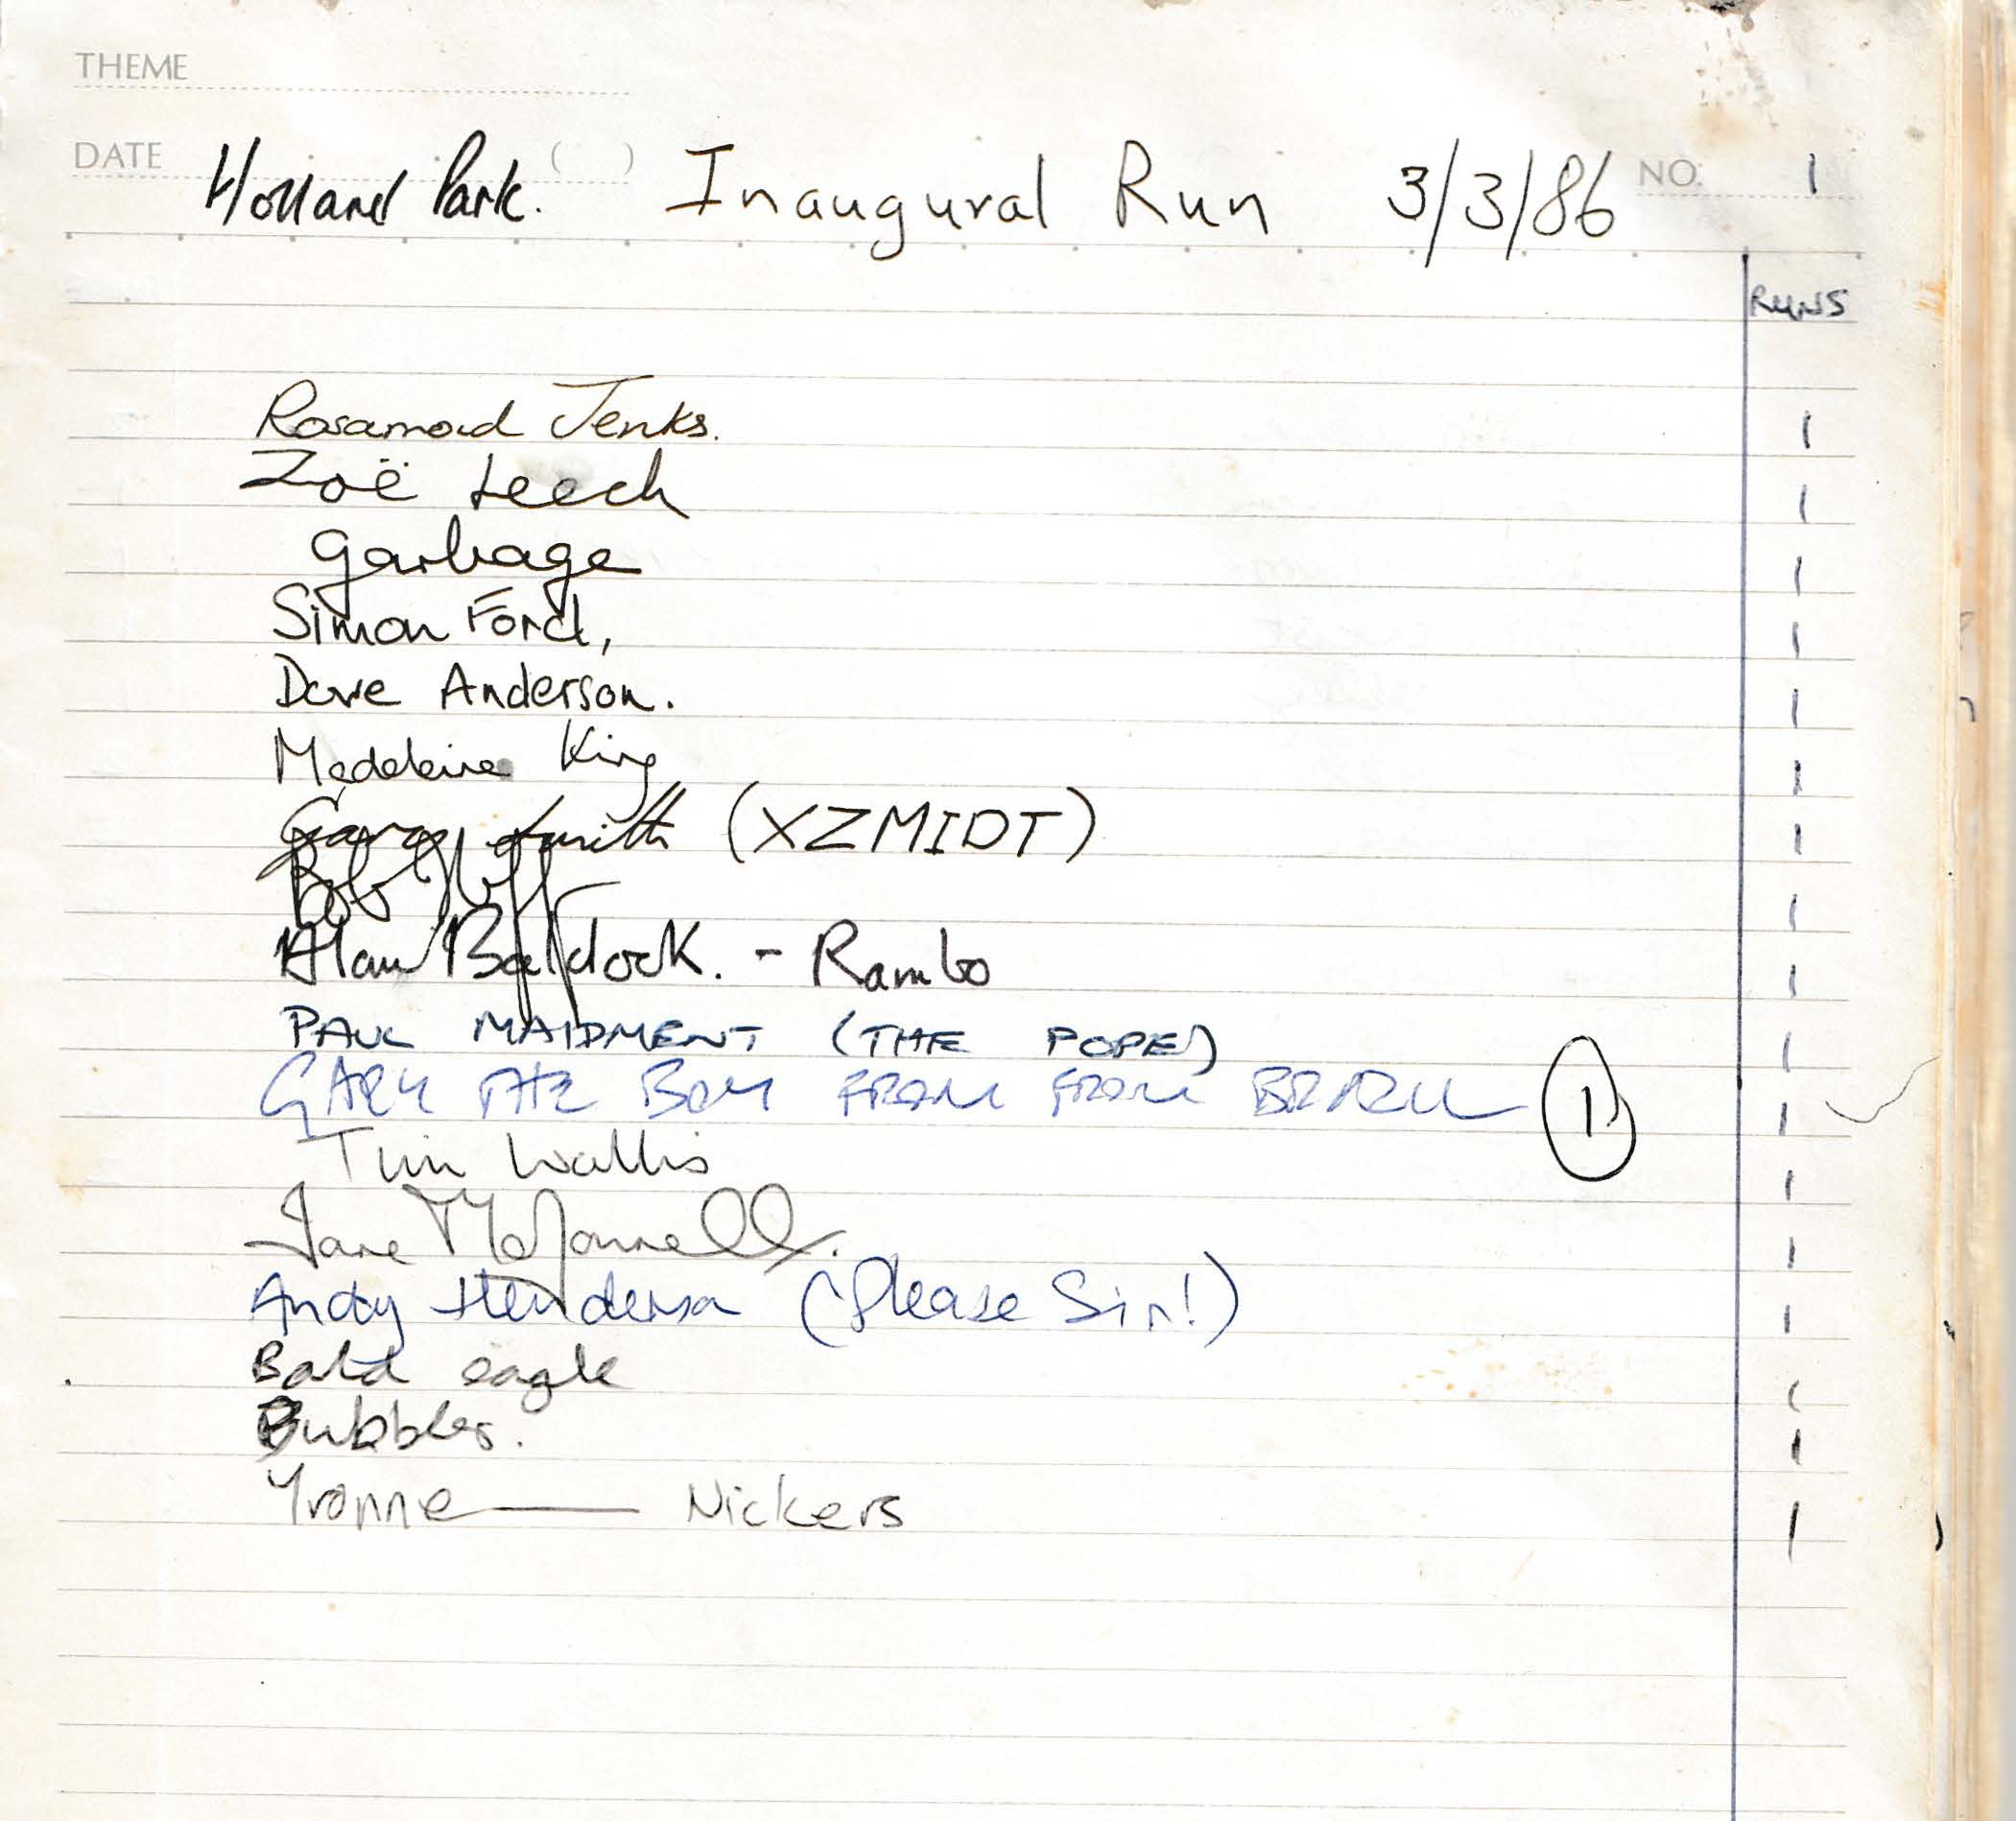 THEME
DATE Holland Park. ( ) Inaugural Run 3/3/86 NO. 1
RUNS
Rosamond Jenks. 1
Zoë Leech 1
Garbage 1
Simon Ford, 1
Dave Anderson. 1
Madeleine King 1
Gary Smith (XZMIDT) 1
Bob 1
Alan Baldock. - Rambo 1
PAUL MAIDMENT (THE POPE) 1
GARY THE BOY FROM FROM BRAZIL 1 1
Tim Wallis 1
Jane McConnell. 1
Andy Henderson (Please Sir!) 1
Bald eagle 1
Bubbles. 1
Yvonne — Nickers 1